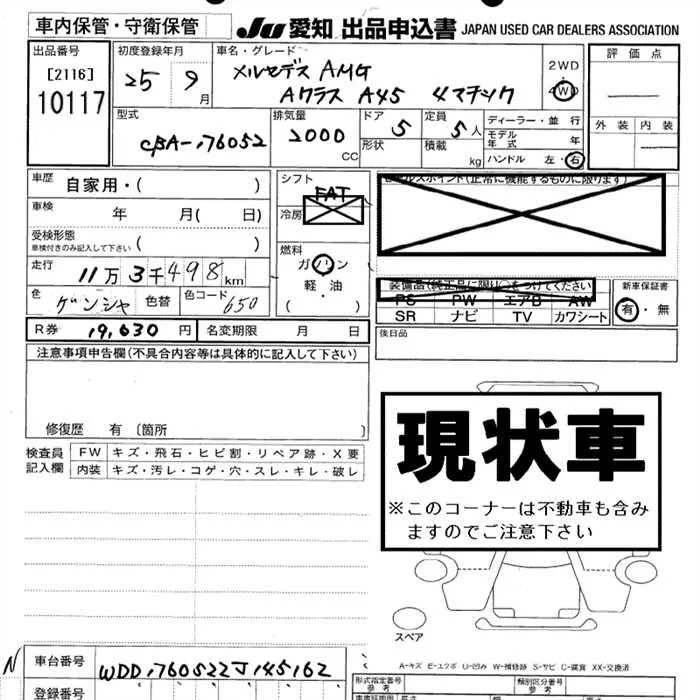 車内保管・守衛保管 JU 愛知 出品申込書 JAPAN USED CAR DEALERS ASSOCIATION
出品番号 初度登録年月 車名・グレード 評価点
[2116] 25 9月 メルセデス AMG 2WD
10117 Aクラス A45 4マチック 4WD
型式 排気量 ドア 定員 ディーラー・並行
CBA-176052 2000 CC 5 5人 モデル年式 年
外装 内装
形状 積載 kg ハンドル 左・右
車歴 自家用・( ) シフト FAT
セールスポイント(正常に機能するものに限ります)
車検 年 月( 日) 冷房
受検形態 ( )
車検付きのみ記入して下さい
燃料 ガソリン
走行 11万3千498km 軽油・
( )
色 ゲンシャ 色替 色コード 650
装備品(純正品に限り○をつけてください) 新車保証書
PS PW エアB AW 有・無
SR ナビ TV カワシート
R券 19,630円 名変期限 月 日 後日品
注意事項申告欄(不具合内容等は具体的に記入して下さい)
修復歴 有 〔箇所
現状車
※このコーナーは不動車も含みますのでご注意下さい
検査員記入欄 FW キズ・飛石・ヒビ割・リペア跡・X要
内装 キズ・汚レ・コゲ・穴・スレ・キレ・破レ
スペア
A-キズ E-エクボ U-凹み W-補修跡 S-サビ C-腐食 XX-交換済
N 車台番号 WDD1760522J145162
型式指定番号 参考 類別区分番号 参考
登録番号